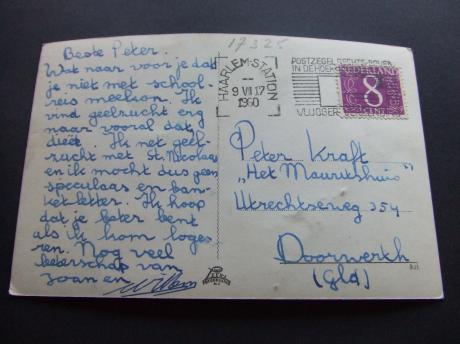 Beste Peter.
Wat naar voor je dat
je niet met school-
reis meekon. Ik
vind geelzucht erg
naar vooral dat
dieet. Ik net geel-
zucht met St. Nicolaas
en ik mocht dus geen
speculaas en ban-
ketletter. Ik hoop
dat je beter bent
als ik kom loge-
ren. Nog veel
beterschap van
Joan en
Willem
17325
HAARLEM-STATION
9 VII 17
1960
POSTZEGEL RECHTS BOVEN
IN DE HOEK
VLUGGER
NEDERLAND
8
CENT
Peter Kraft
„Het Mauritshuis"
Utrechtseweg 354
Doorwerth
(Gld)